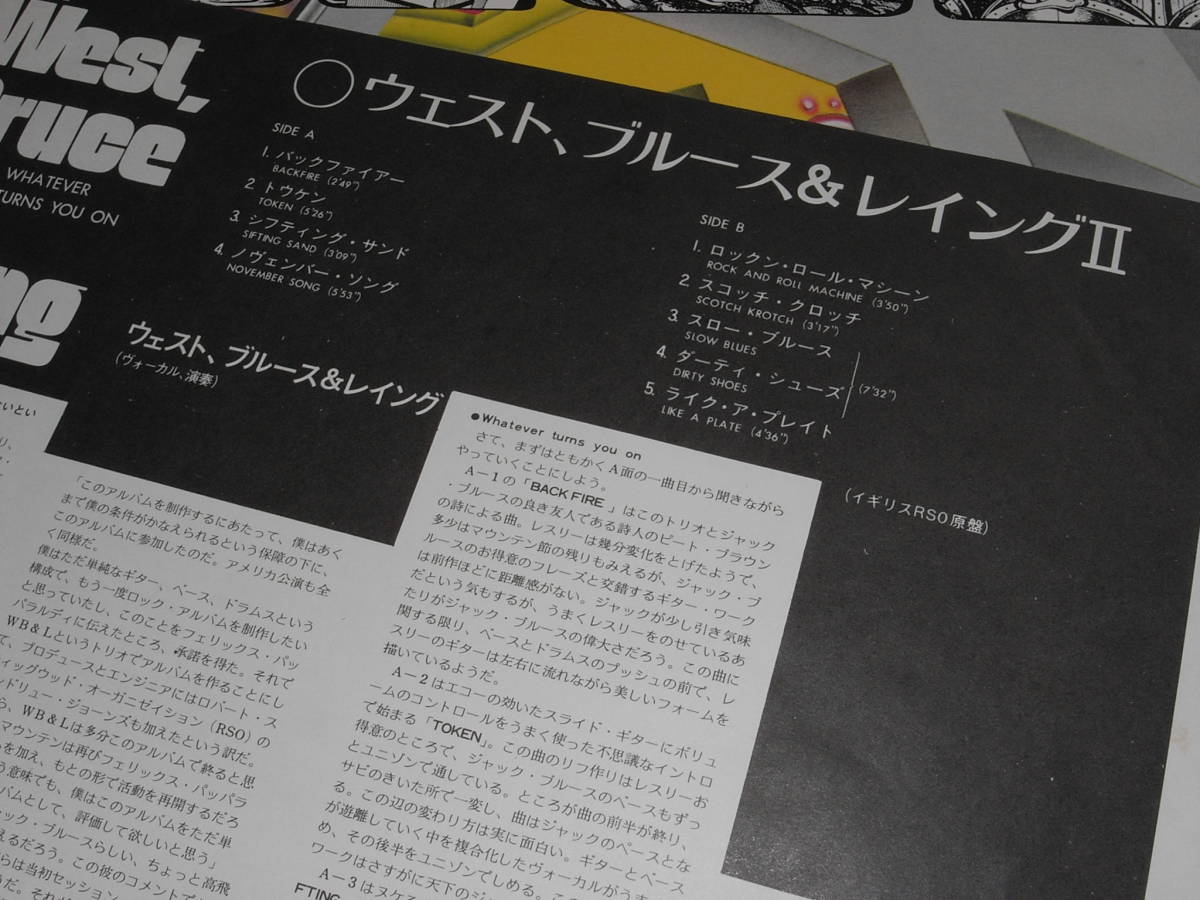 West,
Bruce
WHATEVER
TURNS YOU ON
ng
○ウェスト、ブルース&レイングⅡ
SIDE A
1. バックファイアー
BACKFIRE (2'49")
2. トウケン
TOKEN (5'26")
3. シフティング・サンド
SIFTING SAND (3'09")
4. ノヴェンバー・ソング
NOVEMBER SONG (5'53")
SIDE B
1. ロックン・ロール・マシーン
ROCK AND ROLL MACHINE (3'50")
2. スコッチ・クロッチ
SCOTCH KROTCH (3'17")
3. スロー・ブルース
SLOW BLUES
4. ダーティ・シューズ
DIRTY SHOES
(7'32")
5. ライク・ア・プレイト
LIKE A PLATE (4'36")
ウェスト、ブルース&レイング
(ヴォーカル、演奏)
(イギリスRSO原盤)
「このアルバムを制作するにあたって、僕はあく
まで僕の条件がかなえられるという保障の下に、
このアルバムに参加したのだ。アメリカ公演も全
く同様だ。
僕はただ単純なギター、ベース、ドラムスという
構成で、もう一度ロック・アルバムを制作したい
と思っていたし、このことをフェリックス・パッ
パラルディに伝えたところ、承諾を得た。それで
WB&Lというトリオでアルバムを作ることにし
て、プロデュースとエンジニアにはロバート・ス
ィッグウッド・オーガニゼイション(RSO)の
ンドリュー・ジョーンズも加えたという訳だ。
ら、WB&Lは多分このアルバムで終ると思
マウンテンは再びフェリックス・パッパラ
を加え、もとの形で活動を再開するだろ
う意味でも、僕はこのアルバムをただ単
バムとして、評価して欲しいと思う」
ック・ブルースらしい、ちょっと高飛
えるだろう。この彼のコメントで
らは当初セッション
●Whatever turns you on
さて、まずはともかくA面の一曲目から聞きながら
やっていくことにしよう。
A−1の「BACK FIRE」はこのトリオとジャック
・ブルースの良き友人である詩人のピート・ブラウン
の詩による曲。レスリーは幾分変化をとげたようで、
多少はマウンテン節の残りもみえるが、ジャック・ブ
ルースのお得意のフレーズと交錯するギター・ワーク
は前作ほどに距離感がない。ジャックが少し引き気味
だという気もするが、うまくレスリーをのせているあ
たりがジャック・ブルースの偉大さだろう。この曲に
関する限り、ベースとドラムスのプッシュの前で、レ
スリーのギターは左右に流れながら美しいフォームを
描いているようだ。
A−2はエコーの効いたスライド・ギターにボリュ
ームのコントロールをうまく使った不思議なイントロ
で始まる「TOKEN」。この曲のリフ作りはレスリーお
得意のところで、ジャック・ブルースのベースもずっ
とユニゾンで通している。ところが曲の前半が終り、
サビのきいた所で一変し、曲はジャックのベースとな
る。この辺の変わり方は実に面白い。ギターとベース
が遊離していく中を複合化したヴォーカルがうま
め、その後半をユニゾンでしめる。この
ワークはさすがに天下のジ
A−3はヌケ
FTING